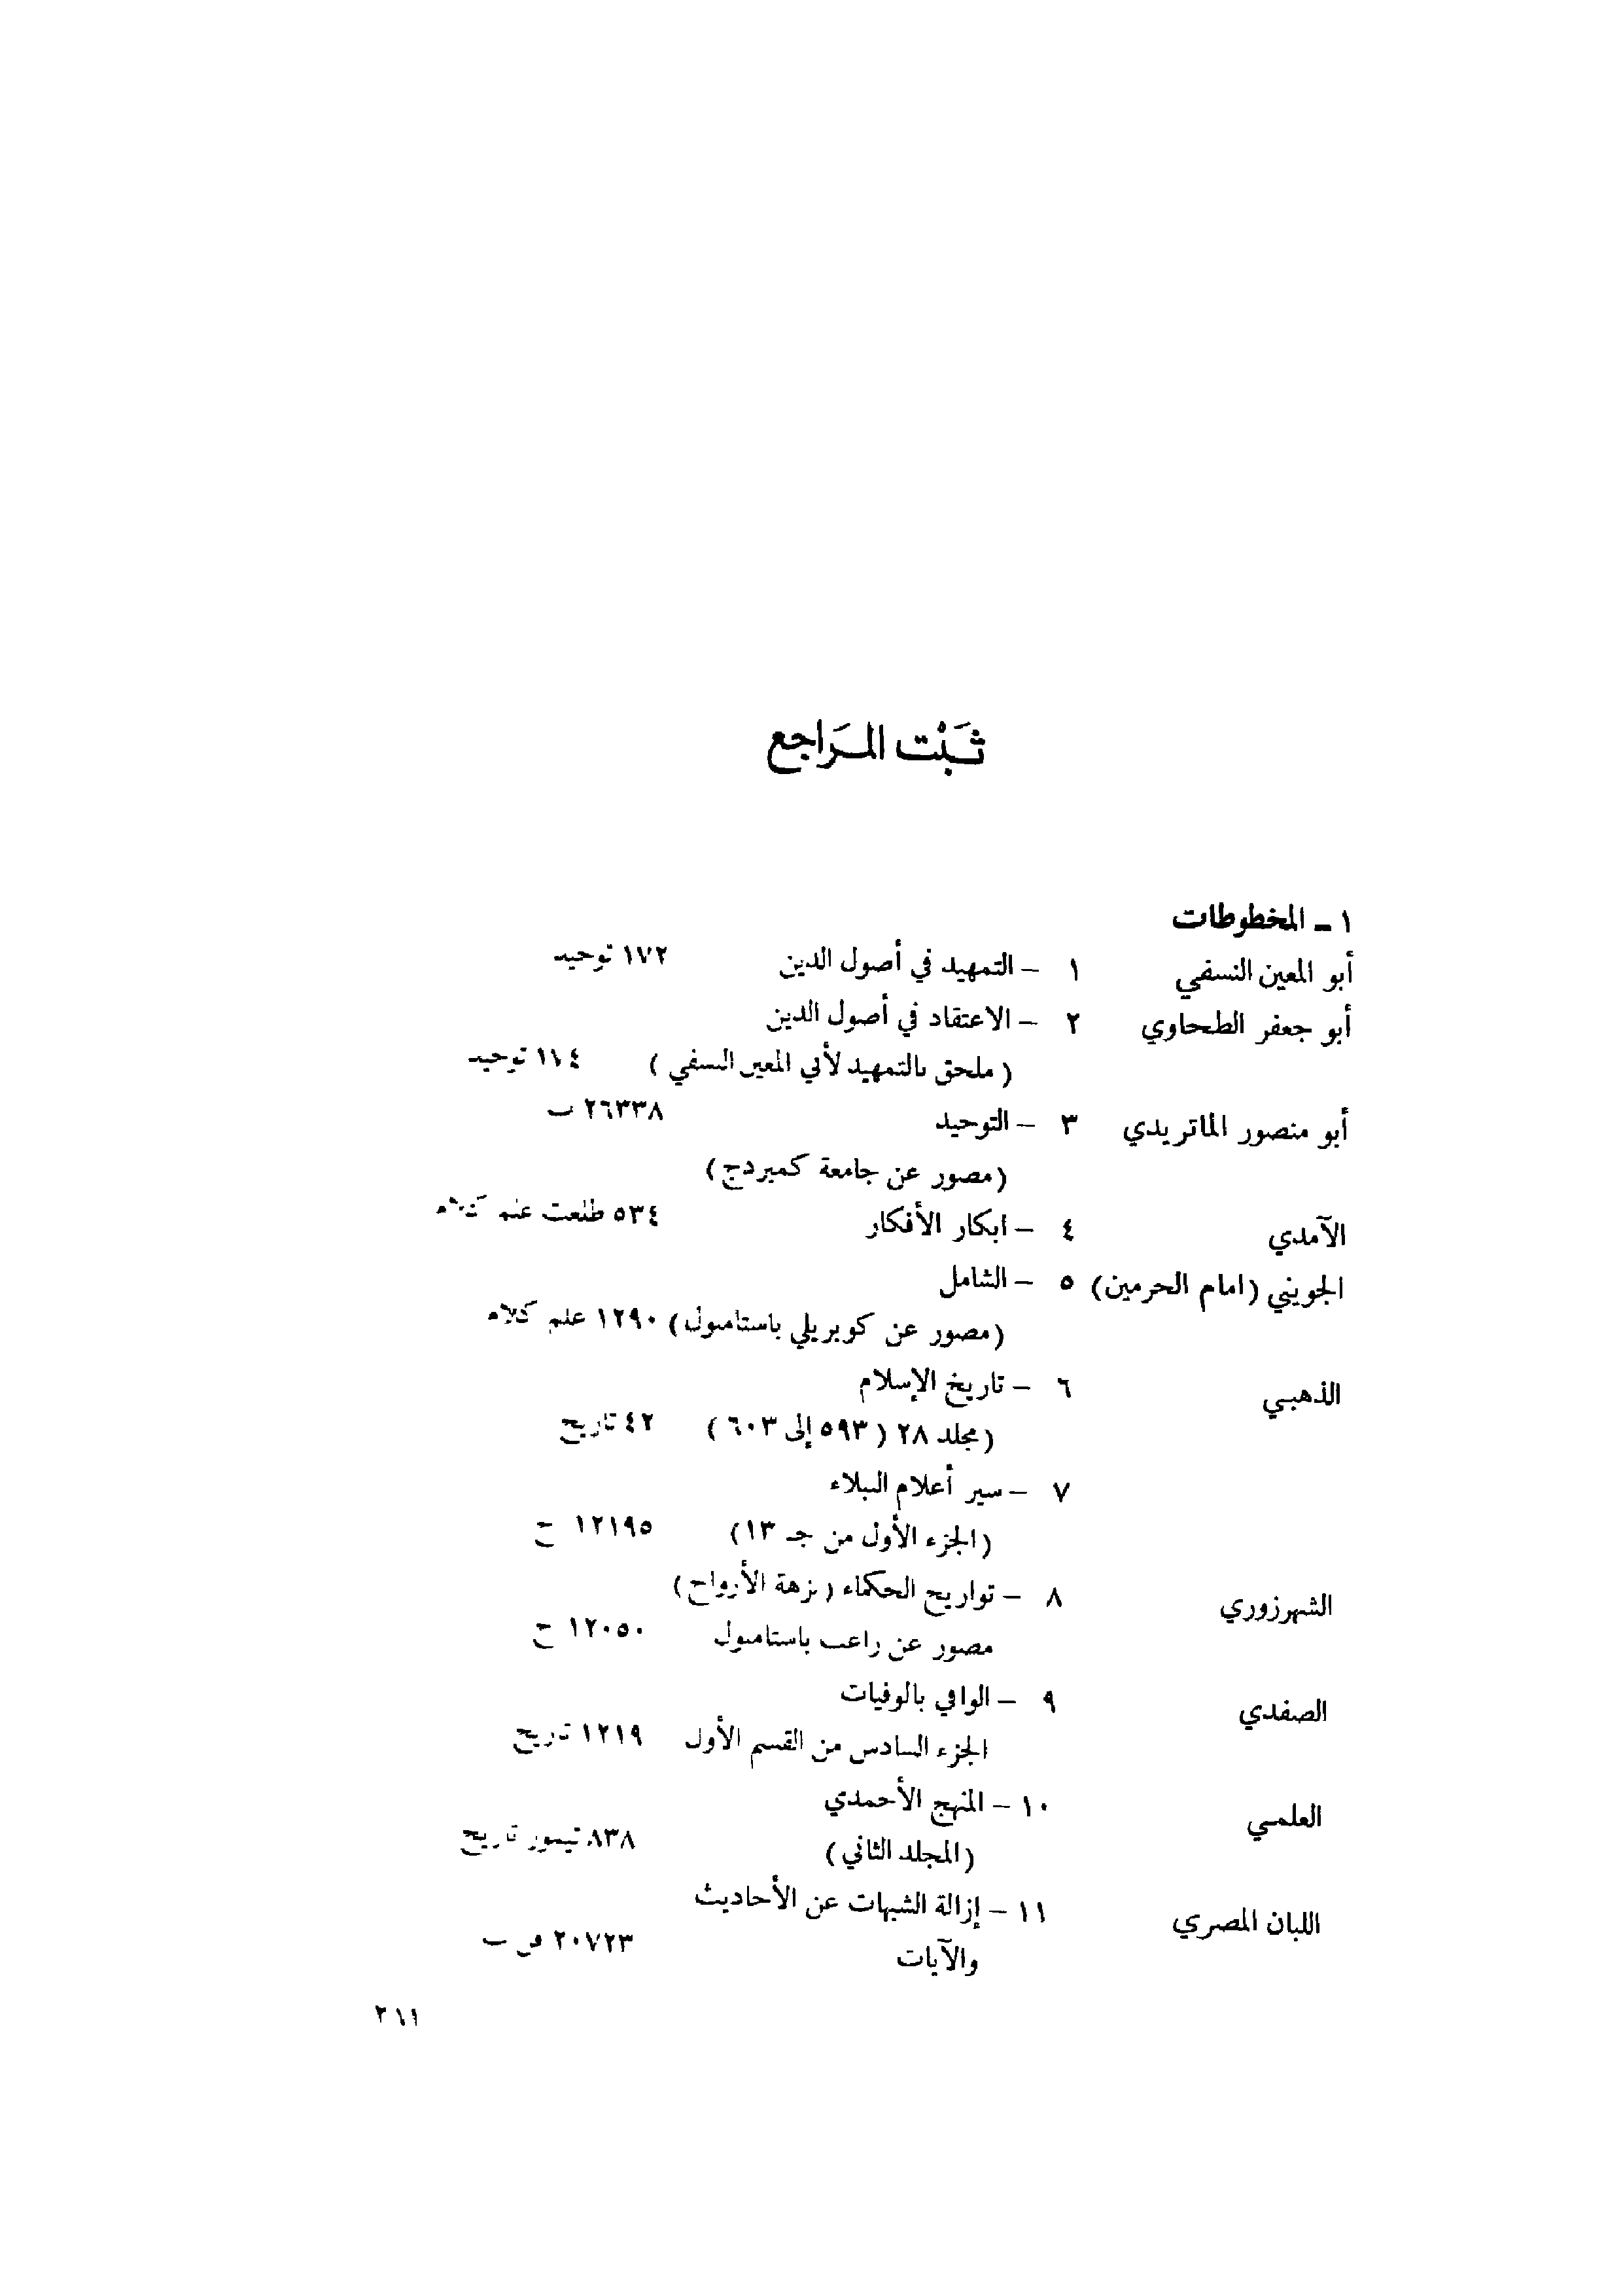 ثَبْت المَراجع
١ - المخطوطات
أبو المعين النسفي ١ - التمهيد في أصول الدين ١٧٢ توحيد
أبو جعفر الطحاوي ٢ - الاعتقاد في أصول الدين
( ملحق بالتمهيد لأبي المعين النسفي ) توحيد
أبو منصور الماتريدي ٣ - التوحيد ٢٦٣٣٨ ب
(مصور عن جامعة كمبردج)
الآمدي ٤ - ابكار الأفكار ٥٣٤ طلعت علم كلام
الجويني (امام الحرمين) ٥ - الشامل
(مصور عن كوبريلي باستامبول) ١٢٩٠ علم كلام
الذهبي ٦ - تاريخ الإسلام
(مجلد ٢٨ ( ٥٩٣ إلى ٦٠٣ ) ٤٢ تاريخ
٧ - سير أعلام النبلاء
(الجزء الأول من جـ ١٣) ١٢١٩٥ ح
الشهرزوري ٨ - تواريخ الحكماء ( نزهة الأرواح )
مصور عن راغب باستامبول ١٢٠٥٠ ح
الصفدي ٩ - الوافي بالوفيات
الجزء السادس من القسم الأول ١٢١٩ تاريخ
العلمي ١٠ - المنهج الأحمدي
(المجلد الثاني ) ٨٣٨ تيمور تاريخ
اللبان المصري ١١ - إزالة الشبهات عن الأحاديث
والآيات ٢٠٧٢٣ ب
٢٦١